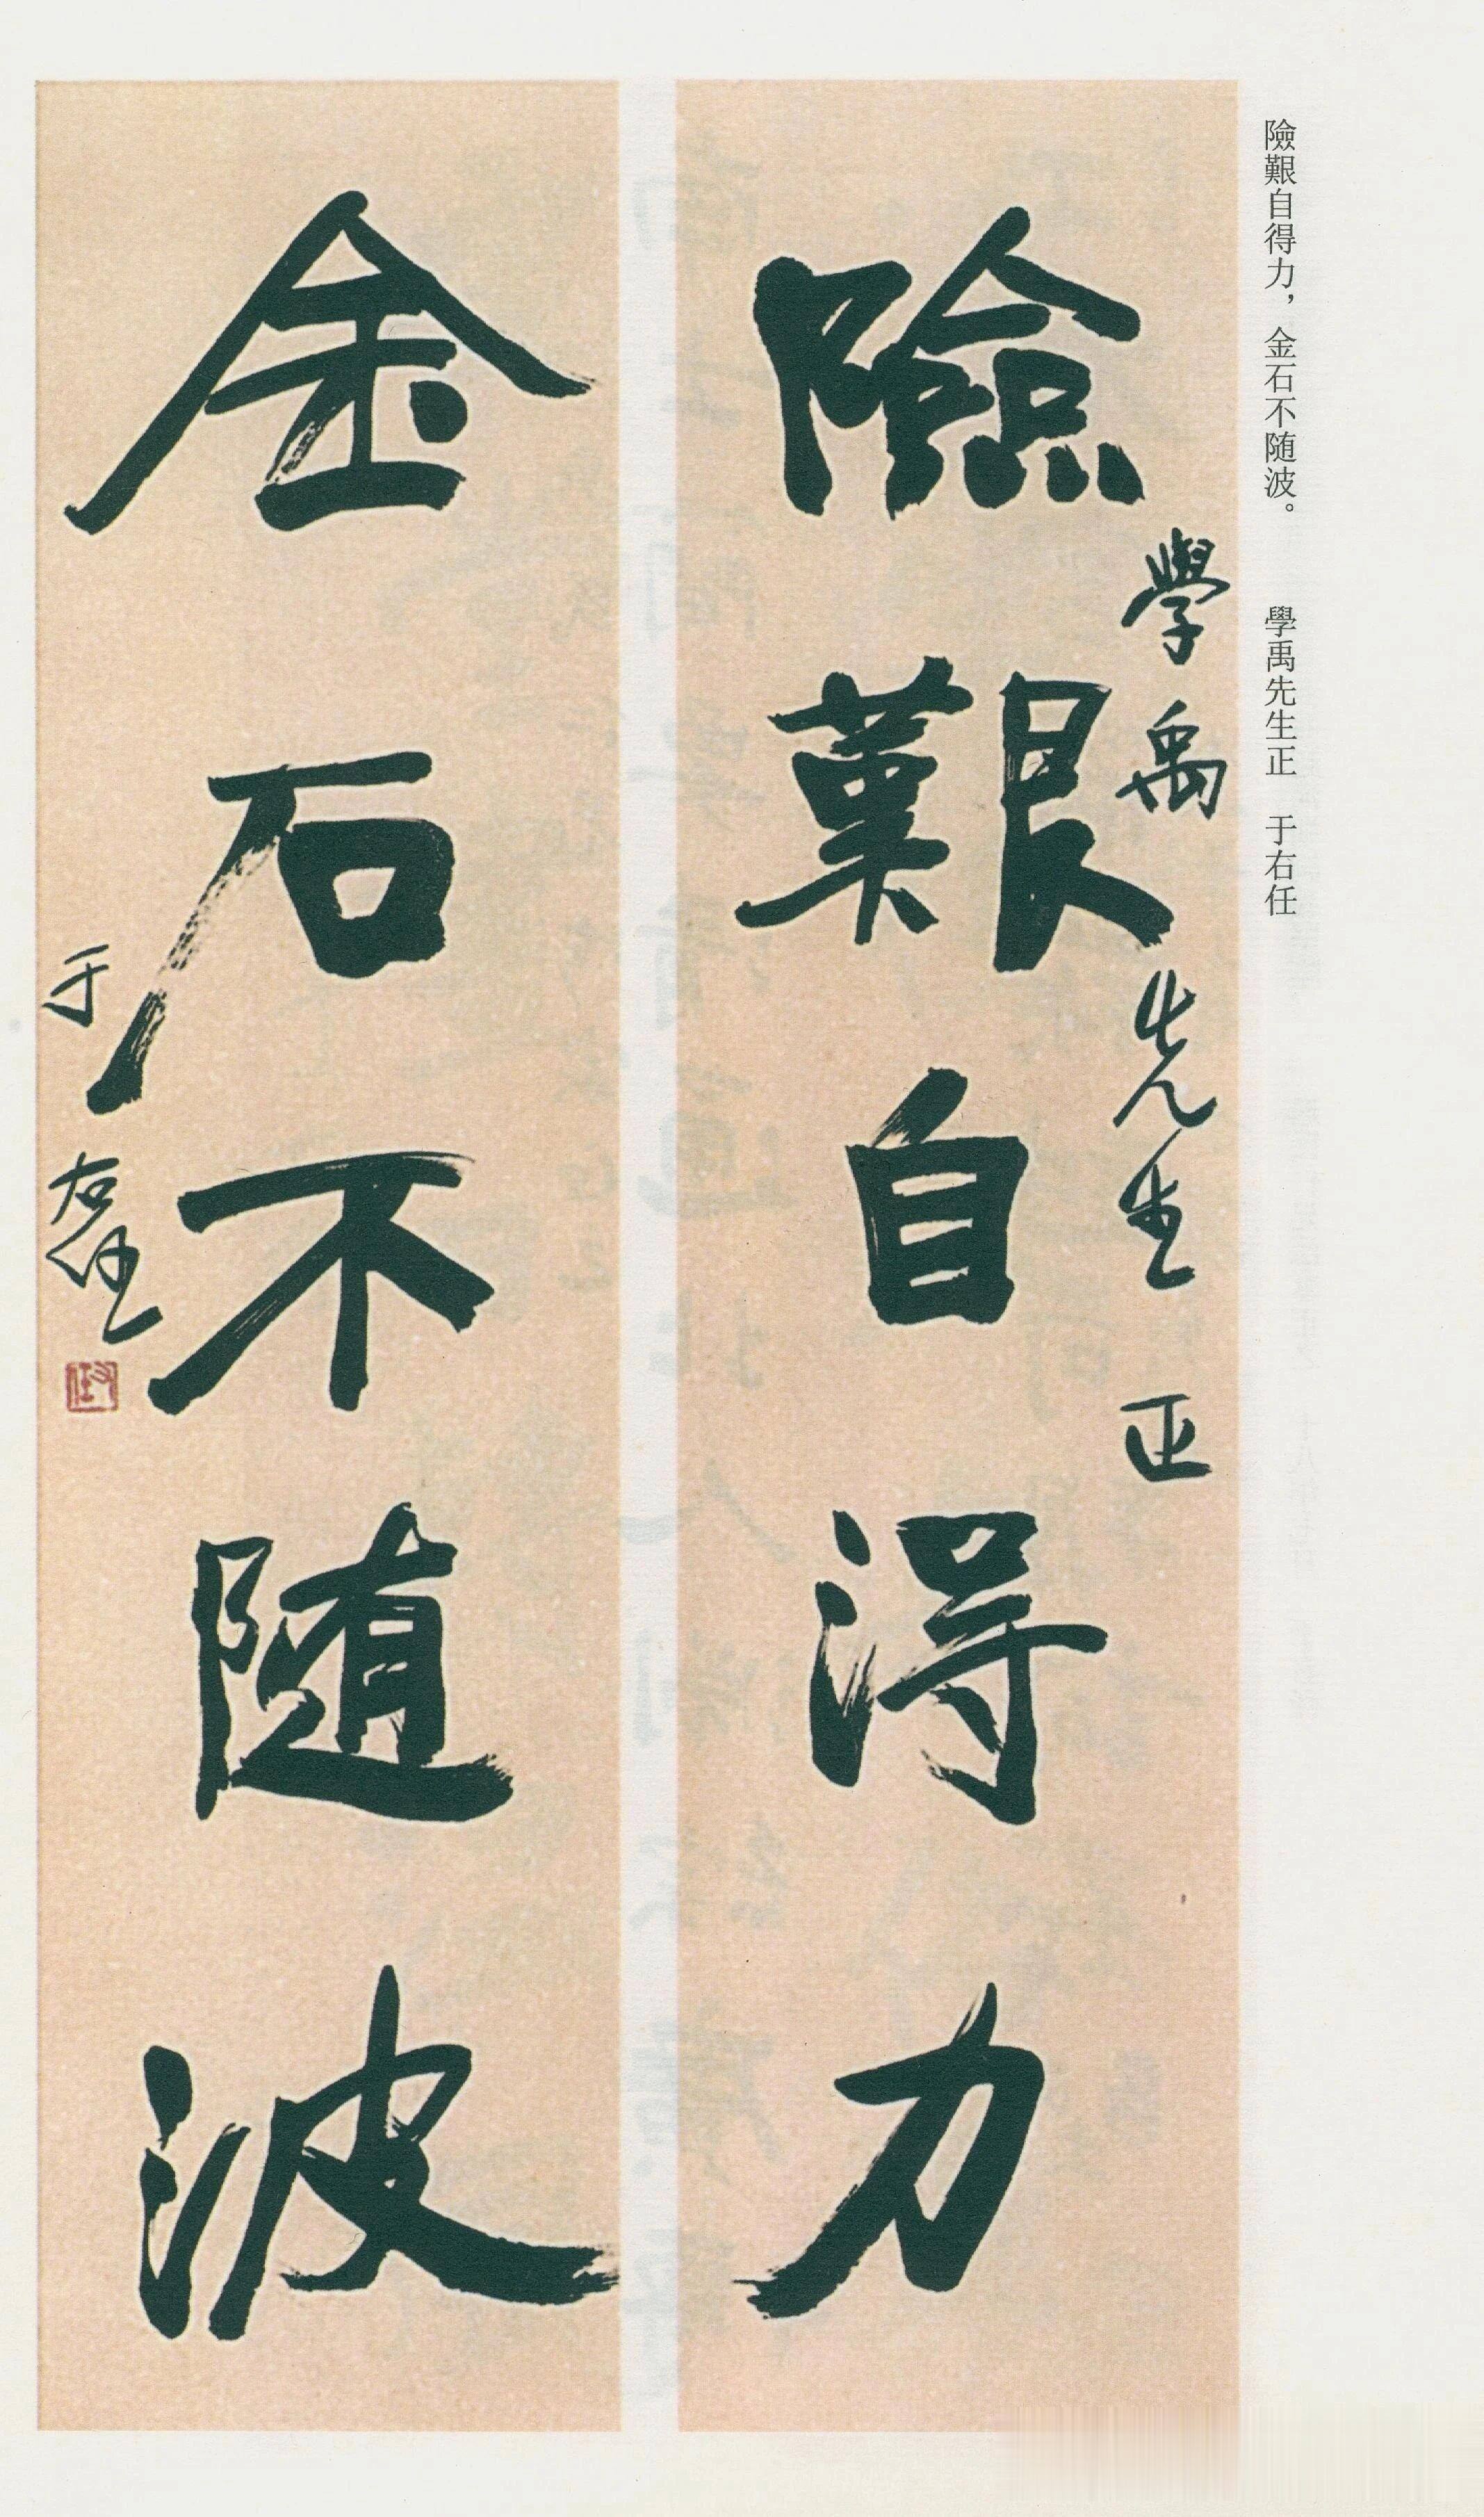 險艱自得力，金石不随波。　學禹先生正　于右任
學禹先生正
險艱自得力
金石不随波
于右任
右任